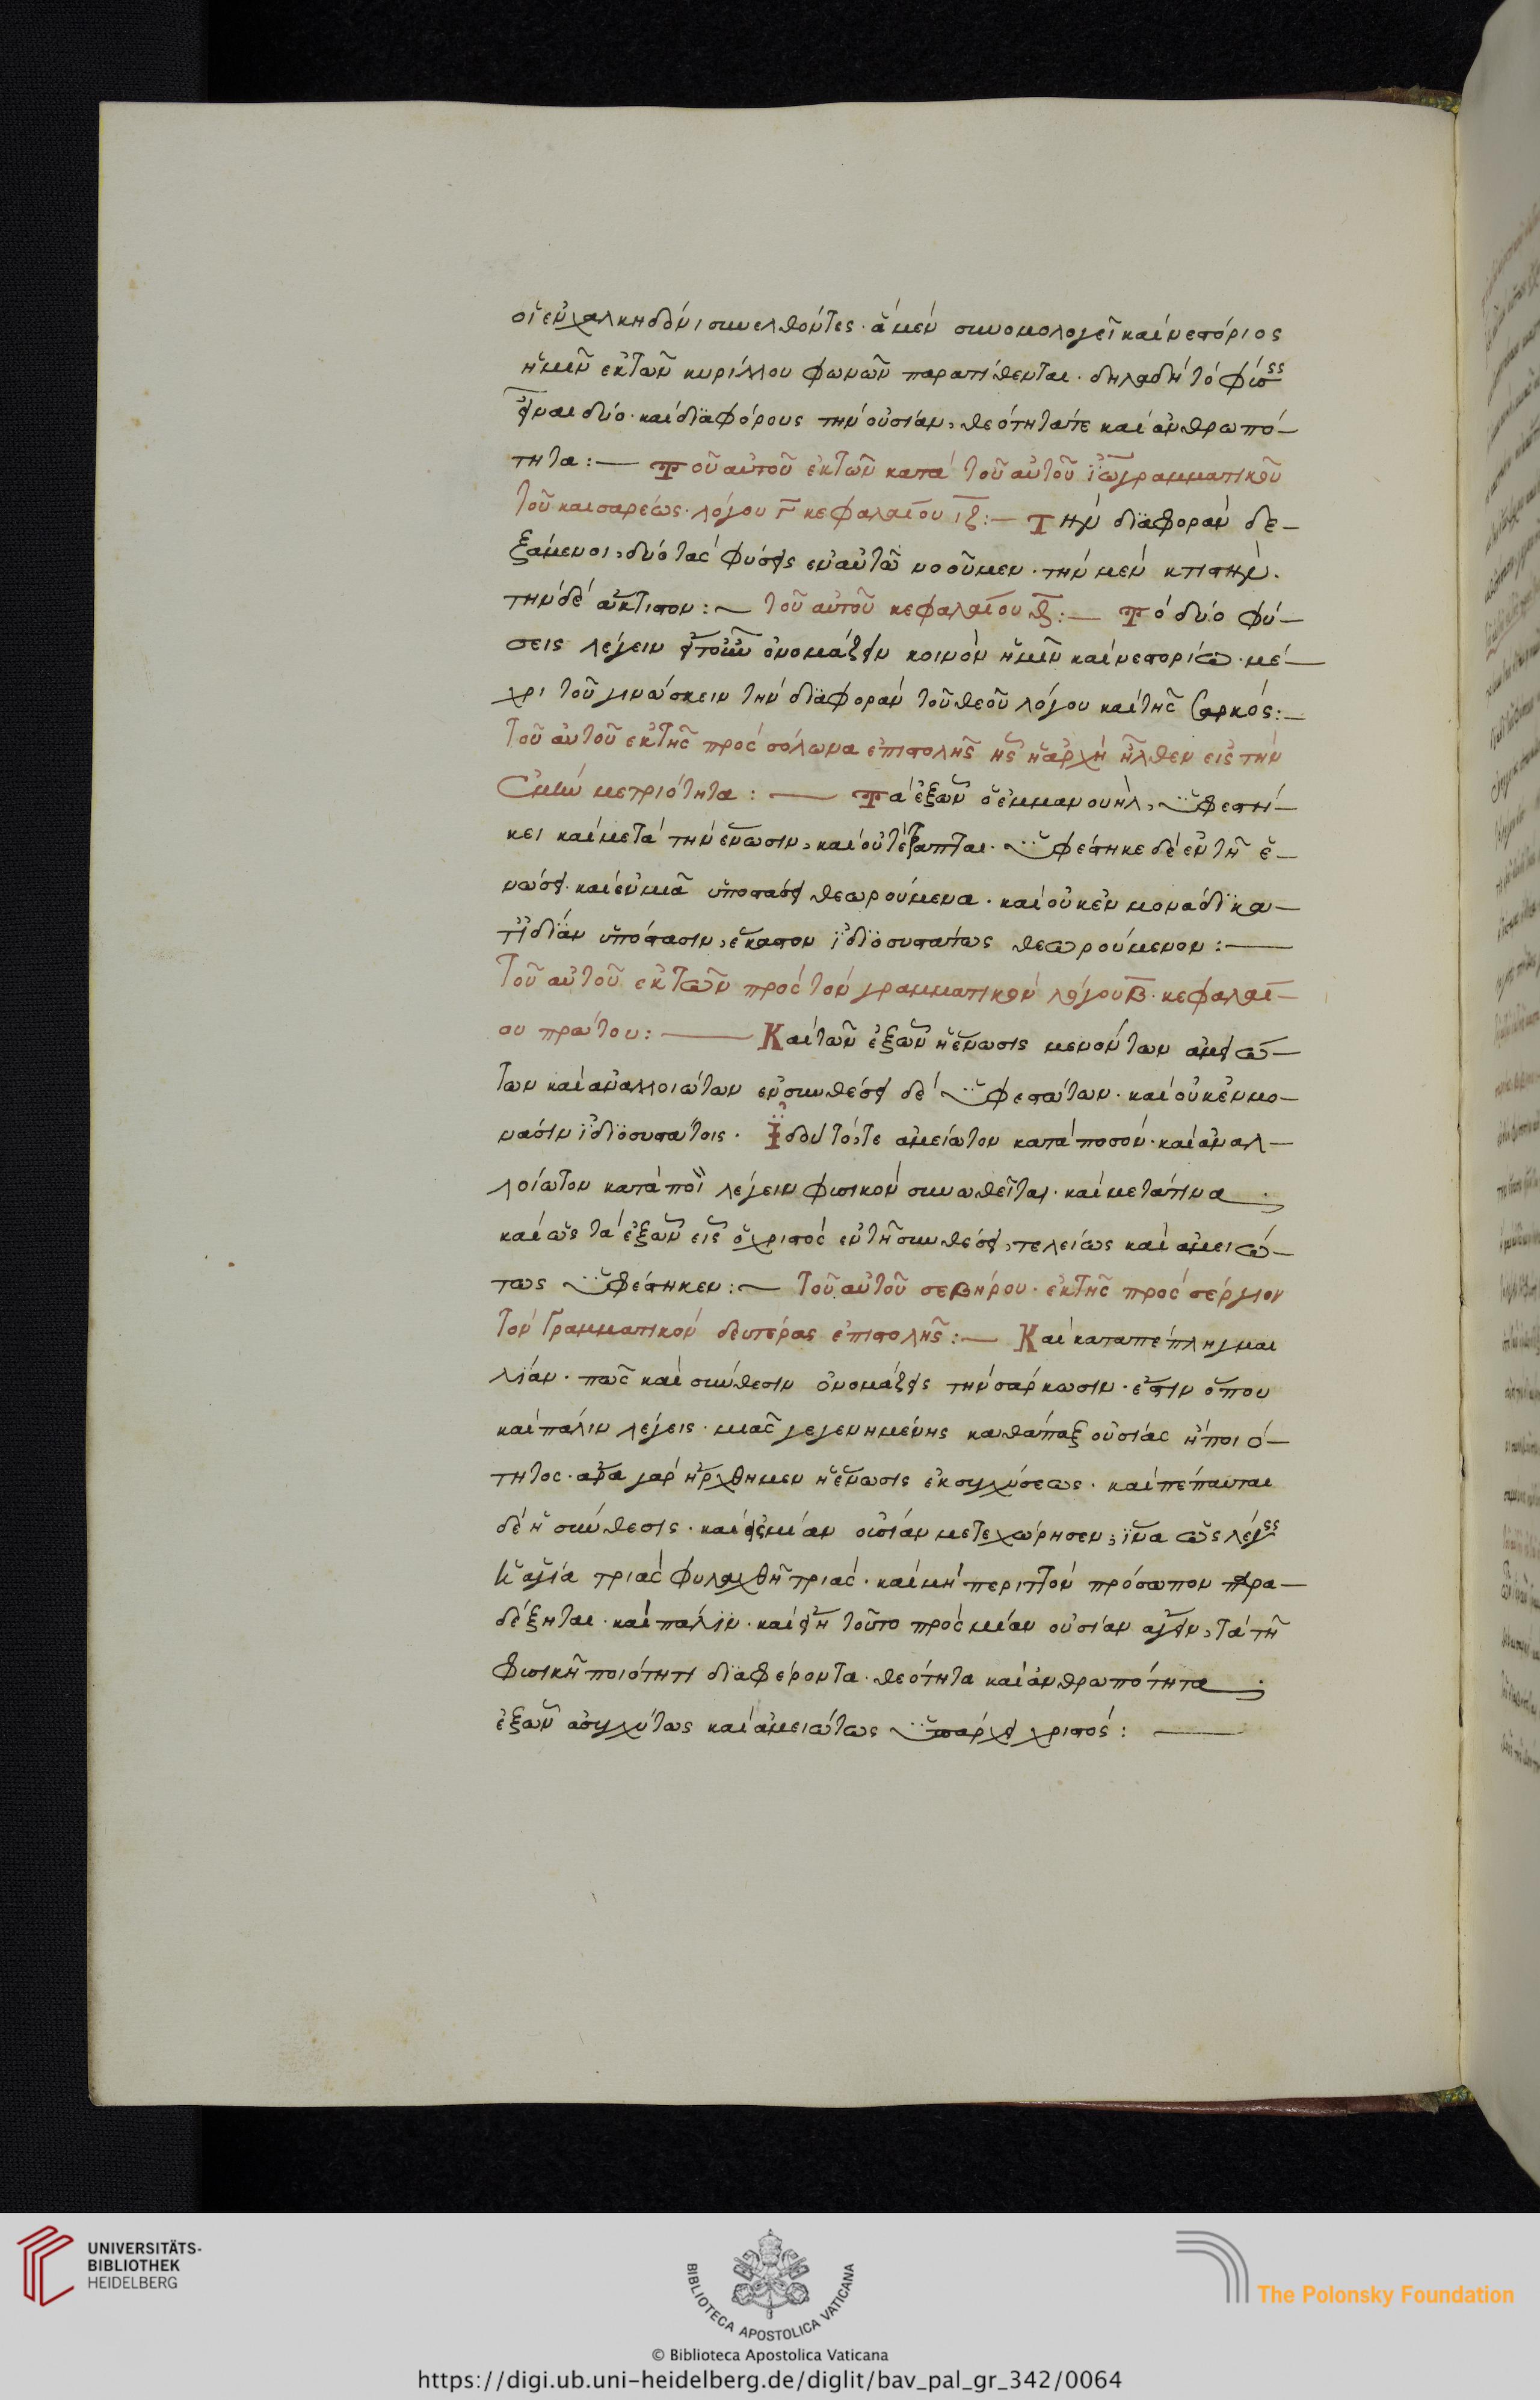 οἱ ἐν χαλκηδόνι συνελθόντες· ἃ μὲν συνομολογεῖ καὶ νεστόριος
ἡμῖν ἐκ τῶν κυρίλλου φωνῶν παρατίθενται· δηλαδὴ τὸ φύσεις
εἶναι δύο· καὶ διαφόρους τὴν οὐσίαν, θεότητά τε καὶ ἀνθρωπό–
τητα:— Τοῦ αὐτοῦ ἐκ τῶν κατὰ τοῦ αὐτοῦ ἰω γραμματικοῦ
τοῦ καισαρέως· λόγου γ κεφαλαίου ιζ:— Τὴν διαφορὰν δε–
ξάμενοι, δύο τὰς φύσεις ἐν αὐτῶ νοοῦμεν· τὴν μὲν κτιστήν·
τὴν δὲ ἄκτιστον:— τοῦ αὐτοῦ κεφαλαίου :— Τὸ δύο φύ–
σεις λέγειν ὀνομάζειν κοινὸν ἡμῖν καὶ νεστορίω· μέ–
χρι τοῦ γινώσκειν τὴν διαφορὰν τοῦ θεοῦ λόγου καὶ τῆς σαρκός:—
Τοῦ αὐτοῦ ἐκ τῆς πρὸς σόλωνα ἐπιστολῆς ἧς ἡ ἀρχὴ ἦλθεν εἰς τὴν
ἐμὴν μετριότητα:— Τὰ ἐξ ὧν ὁ ἐμμανουὴλ, ὑφεστή–
κει καὶ μετὰ τὴν ἕνωσιν, καὶ οὐ τέτραπται· ὑφέστηκε δὲ ἐν τῆ ἑ–
νώσει· καὶ ἐν μιᾶ ὑποστάσει θεωρούμενα· καὶ οὐκ ἐν μονάδι κα–
τ᾽ ἰδίαν ὑπόστασιν, ἕκαστον ἰδιοσυστάτως θεωρούμενον:—
Τοῦ αὐτοῦ ἐκ τῶν πρὸς τὸν γραμματικὸν λόγου β· κεφαλαί–
ου πρώτου:— Καὶ τῶν ἐξ ὧν ἡ ἕνωσις μενόντων ἀμειώ–
των καὶ ἀναλλοιώτων ἐν συνθέσει δὲ ὑφεστώτων· καὶ οὐκ ἐν μο–
νάσιν ἰδιοσυστάτοις· Ἰδοὺ τό, τε ἀμείωτον κατὰ ποσόν· καὶ ἀναλ–
λοίωτον κατὰ ποι λέγειν φυσικὸν συνωθεῖται· καὶ μετά τινα
καὶ ὡς τὰ ἐξ ὧν εἷς ὁ χριστὸς ἐν τῆ συνθέσει, τελείως καὶ ἀμειώ–
τως ὑφέστηκεν:— Τοῦ αὐτοῦ σεβήρου· ἐκ τῆς πρὸς σέργιον
τὸν Γραμματικὸν δευτέρας ἐπιστολῆς:— Καὶ καταπέπληγμαι
λίαν· πῶς καὶ σύνθεσιν ὀνομάζεις τὴν σάρκωσιν· ἔστιν ὅπου
καὶ πάλιν λέγεις· μιᾶς γεγενημένης καθάπαξ οὐσίας ἢ ποιό–
τητος· ἄρα γὰρ ἤρχθημεν ἡ ἕνωσις ἐκ συγχύσεως· καὶ πέπαυται
δὲ ἡ σύνθεσις· καὶ εἰς μίαν οὐσίαν μετεχώρησεν, ἵνα ὡς λέγεις
ἡ ἁγία τριὰς φυλαχθῆ τριάς· καὶ μὴ περιττὸν πρόσωπον παρα–
δέξηται· καὶ πάλιν· καὶ εἰ μὴ τοῦτο πρὸς μίαν οὐσίαν ἄγειν, τὰ τῆ
φυσικῆ ποιότητι διαφέροντα· θεότητα καὶ ἀνθρωπότητα
ἐξ ὧν ἀσυγχύτως καὶ ἀμειώτως ὑπάρχει χριστός:—
UNIVERSITÄTS-
BIBLIOTHEK
HEIDELBERG
BIBLIOTECA APOSTOLICA VATICANA
The Polonsky Foundation
© Biblioteca Apostolica Vaticana
https://digi.ub.uni-heidelberg.de/diglit/bav_pal_gr_342/0064